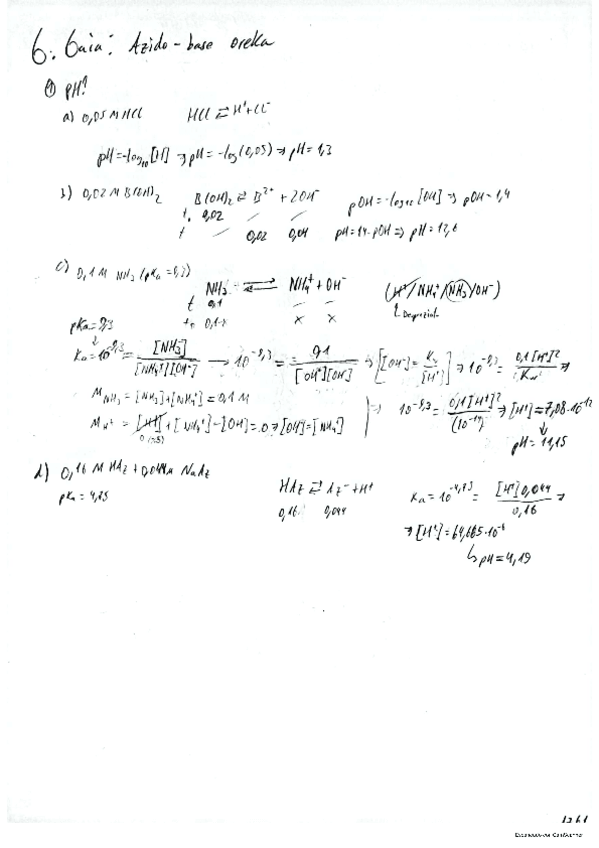 6. Gaia: Azido-base oreka
① pH?
a) 0,05 M HCl HCl ⇄ H⁺+Cl⁻
pH=-log₁₀[H] ⇒ pH=-log(0,05) ⇒ pH=1,3
b) 0,02 M B(OH)₂ B(OH)₂ ⇄ B²⁺ + 2OH⁻ pOH=-log₁₀[OH] ⇒ pOH=1,4
0,02 — —
— 0,02 0,04 pH=14-pOH ⇒ pH=12,6
c) 0,1 M NH₃ (pKa=9,3)
NH₃ ⇄ NH₄⁺ + OH⁻ (H⁺/NH₄⁺/NH₃/OH⁻)
0,1 — —
0,1-x x x
pKa=9,3
Ka=10⁻⁹,³ = [NH₃]/[NH₄⁺][OH⁻] → 10⁻⁹,³ = 0,1/[OH⁻][OH⁻] ⇒ [[OH⁻]=Kw/[H⁺]] ⇒ 10⁻⁹,³ = 0,1[H⁺]²/Kw² ⇒
M NH₃ = [NH₃]+[NH₄⁺]=0,1 M
M H⁺ = [H⁺]+[NH₄⁺]-[OH⁻]=0 ⇒ [OH⁻]=[NH₄⁺] ⇒ 10⁻⁹,³ = 0,1[H⁺]²/(10⁻¹⁴)² ⇒ [H⁺]=7,08·10⁻¹²
pH=11,15
d) 0,16 M HAz + 0,044 M NaAz
pKa=4,75 HAz ⇄ Az⁻+H⁺ Ka=10⁻⁴,⁷⁵ = [H⁺]0,044/0,16 ⇒
0,16 0,044
⇒ [H⁺]=64,665·10⁻⁶
↳ pH=4,19
CamScanner